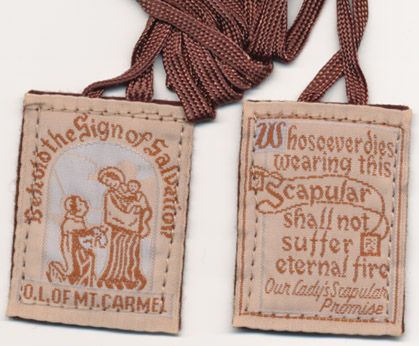 Behold the Sign of Salvation
O.L. OF MT. CARMEL
Whosoever dies
wearing this
Scapular
shall not
suffer
eternal fire
Our Lady's Scapular
Promise